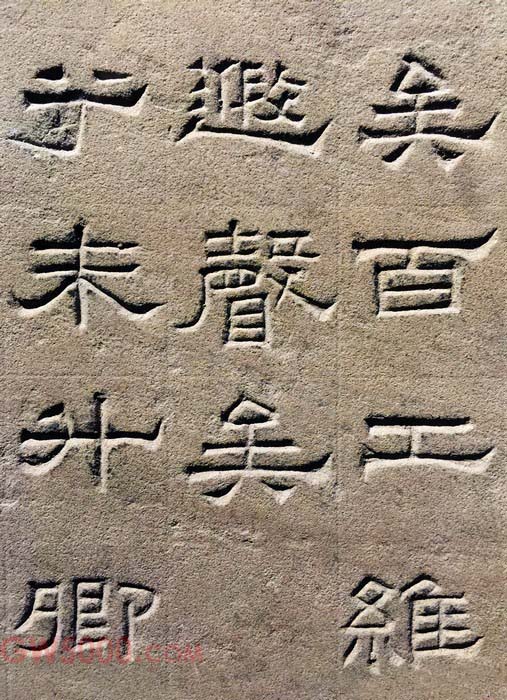 矣百工維
遐聲矣
于未升卿
GW5000.com